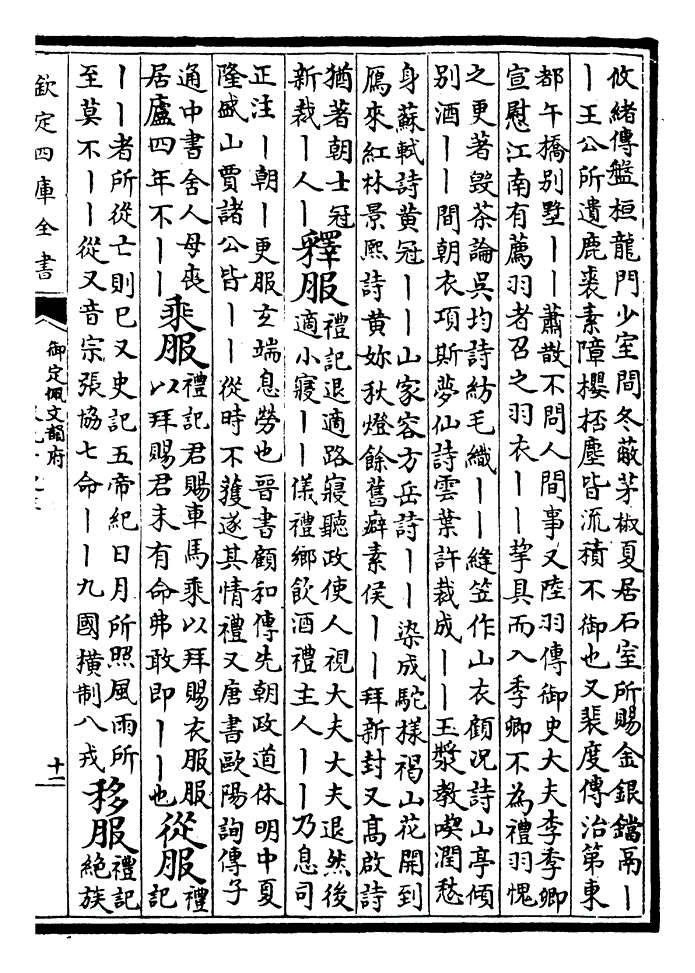 攸緒傳盤桓龍門少室間冬蔽茅椒夏居石室所賜金銀鐺鬲丨
丨王公所遺鹿裘素障櫻桮塵皆流積不御也又裴度傳治第東
都午橋別墅丨丨蕭散不問人間事又陸羽傳御史大夫李季卿
宣慰江南有薦羽者召之羽衣丨丨挈具而入季卿不為禮羽愧
之更著毀茶論吳均詩紡毛織丨丨縫笠作山衣顧況詩山亭傾
別酒丨丨間朝衣項斯夢仙詩雲葉許裁成丨丨玉漿教喫潤愁
身蘇軾詩黄冠丨丨山家容方岳詩丨丨染成駝樣褐山花開到
鴈來紅林景熙詩黄妳秋燈餘舊癖素侯丨丨拜新封又髙啟詩
猶著朝士冠
新裁丨人丨
釋服
禮記退適路寢聽政使人視大夫大夫退然後
適小寢丨丨儀禮鄉飲酒禮主人丨丨乃息司
正注丨朝丨更服玄端息勞也晉書顧和傳先朝政道休明中夏
隆盛山賈諸公皆丨丨從時不獲遂其情禮又唐書歐陽詢傳子
通中書舍人母喪
居廬四年不丨丨
乘服
禮記君賜車馬乘以拜賜衣服服
以拜賜君未有命弗敢即丨丨也
從服
禮
記
丨丨者所從亡則已又史記五帝紀日月所照風雨所
至莫不丨丨從又音宗張協七命丨丨九國橫制八戎
移服
禮記
絶族
欽定四庫全書
御定佩文韻府
十一